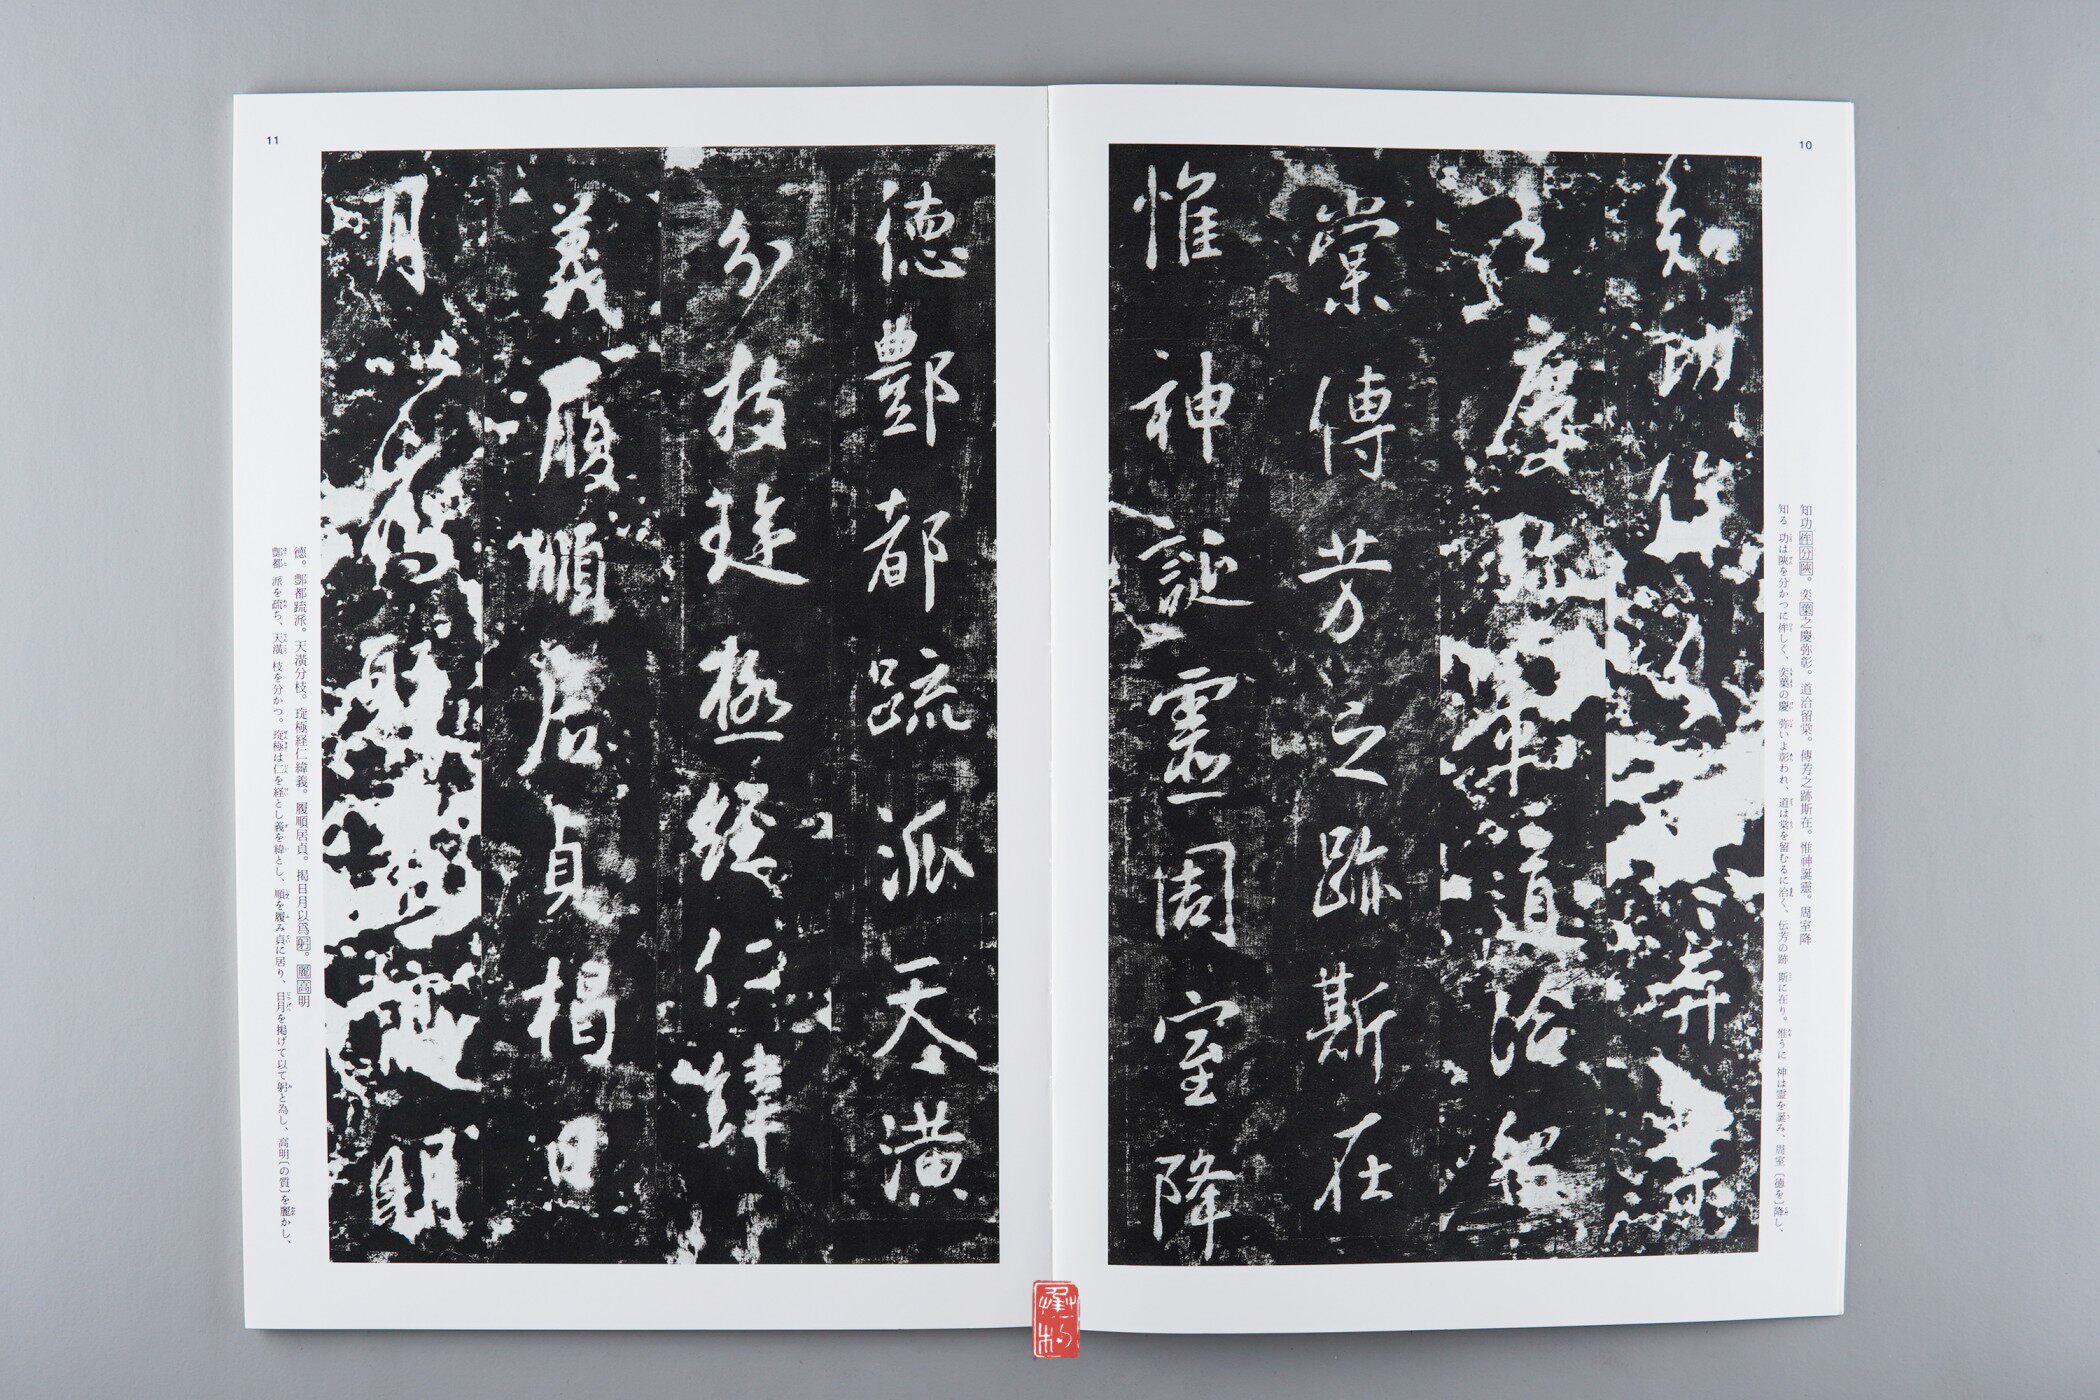 10
知功侔分陝。奕葉之慶弥彰。道洽留棠。傳芳之跡斯在。惟神誕靈。周室降
知る 功は陝を分かつに侔しく、奕葉の慶 弥いよ彰われ、道は棠を留むるに洽く、伝芳の跡 斯に在り。惟うに 神は霊を誕み、周室〔徳を〕降し、
之慶弥彰道洽留
棠傳芳之跡斯在
惟神誕靈周室降
11
德酆都疏派天潢
分枝琁極經仁緯
義履順居貞揭日
月以爲躬麗高明
德。酆都疏派。天潢分枝。琁極経仁緯義。履順居貞。揭日月以爲躬。麗高明
酆都 派を疏ち、天潢 枝を分かつ。琁極は仁を経とし義を緯とし、順を履み貞に居り、日月を掲げて以て躬と為し、高明〔の質〕を麗かし、